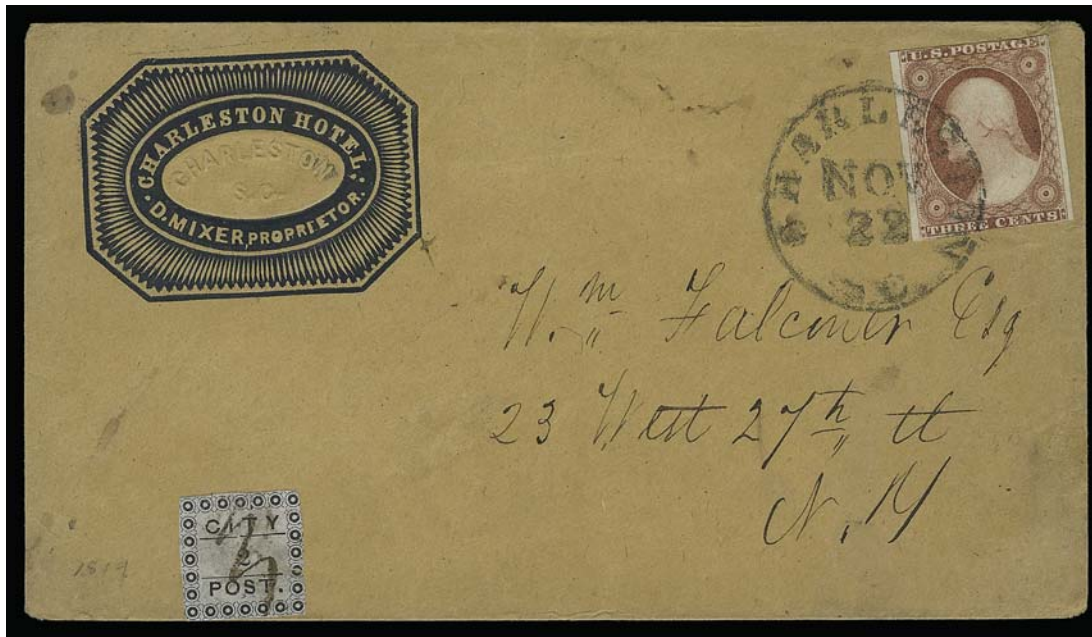 CHARLESTON HOTEL,
CHARLESTON
S.C.
D. MIXER, PROPRIETOR.
U.S. POSTAGE
THREE CENTS
CHARLESTON
NOV
22
S.C.
Wm Falconer Esq
23 West 27th st
N.Y
CITY
2
POST.